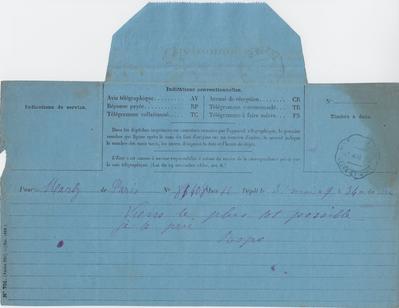 Indications de service.
Indications conventionnelles.
Avis télégraphique AV
Réponse payée RP
Télégramme collationné TC
Accusé de réception CR
Télégramme recommandé TR
Télégramme à faire suivre FS
N°
Timbre à date.
Dans les dépêches imprimées en caractères romains par l'appareil télégraphique, le premier
nombre qui figure après le nom du lieu d'origine est un numéro d'ordre, le second indique
le nombre des mots taxés, les autres désignent la date et l'heure de dépôt.
L'État n'est soumis à aucune responsabilité à raison du service de la correspondance privée par
la voie télégraphique. (Loi du 29 novembre 1850, art. 6.)
Pour Marly de Paris N° Mots 11 Dépôt le 5
Viens le plus tôt possible
je te prie
N° 701.